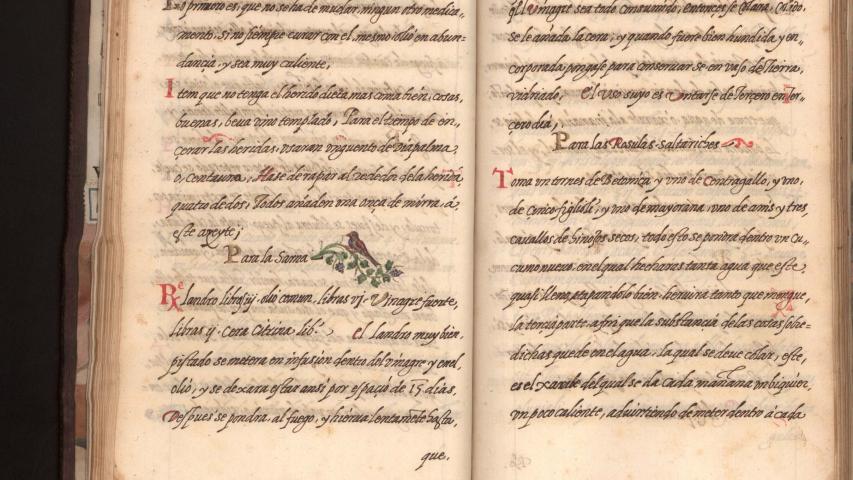 Lo primero es, que no se ha de mudar, ningun otro medica,
mento, si no siempre curar con el, mesmo olio en abun,
dançia, y sea muy caliente,
Item que no tenga el herido dieta mas coma bien, cosas,
buenas, beua vino templado, Para el tiempo de en,
çerar las heridas, usaran unguento de diapalma
o, centaura, Hase de rapar al rededor de la herida
quatro dedos, Todos añaden una onça de mirra, a,
este azeyte;
Para la Sarna
Re landro libras iij, olio comun, libras vj. Vinagre fuerte,
libras ij. Cera Cittrina lib.ª el landro muy bien,
pistado se metera en infusion dentro del vinagre y en el,
olio, y se dexara estar ansi por espaçio de 15 dias,
Despues se pondra, al fuego, y hierua lentamẽte hasta,
que.
q̃ el Vinagre sea todo consumido, entonçes se Colara,
se le añada la cera, y quando fuere bien hundida y en,
corporada, pongase para conseruar se en vaso de tierra,
vidriado, El uso suyo es untarse de Terçero en Ter,
çero dia,
Para las Rosulas saltariches
Toma vn tornes de Betonica y vno de Centragallo, y vno,
de Cinco figlisli, y vno de mayorana, vno de anis y tres,
casuallos de hinojos secos, todo esto se pondra dentro vn Cu,
cumo nueuo en el qual hecharas tanta agua que este
quasi lleno, atapandolo bien, heruira tanto que mengue,
la terçia parte, a fin que la substancia de las cosas sobre,
dichas quede en el agua, la qual se deue colar, este,
es el xaraue del qual se da cada mañana un biquier,
vn poco caliente, aduirtiendo de meter dentro a cada